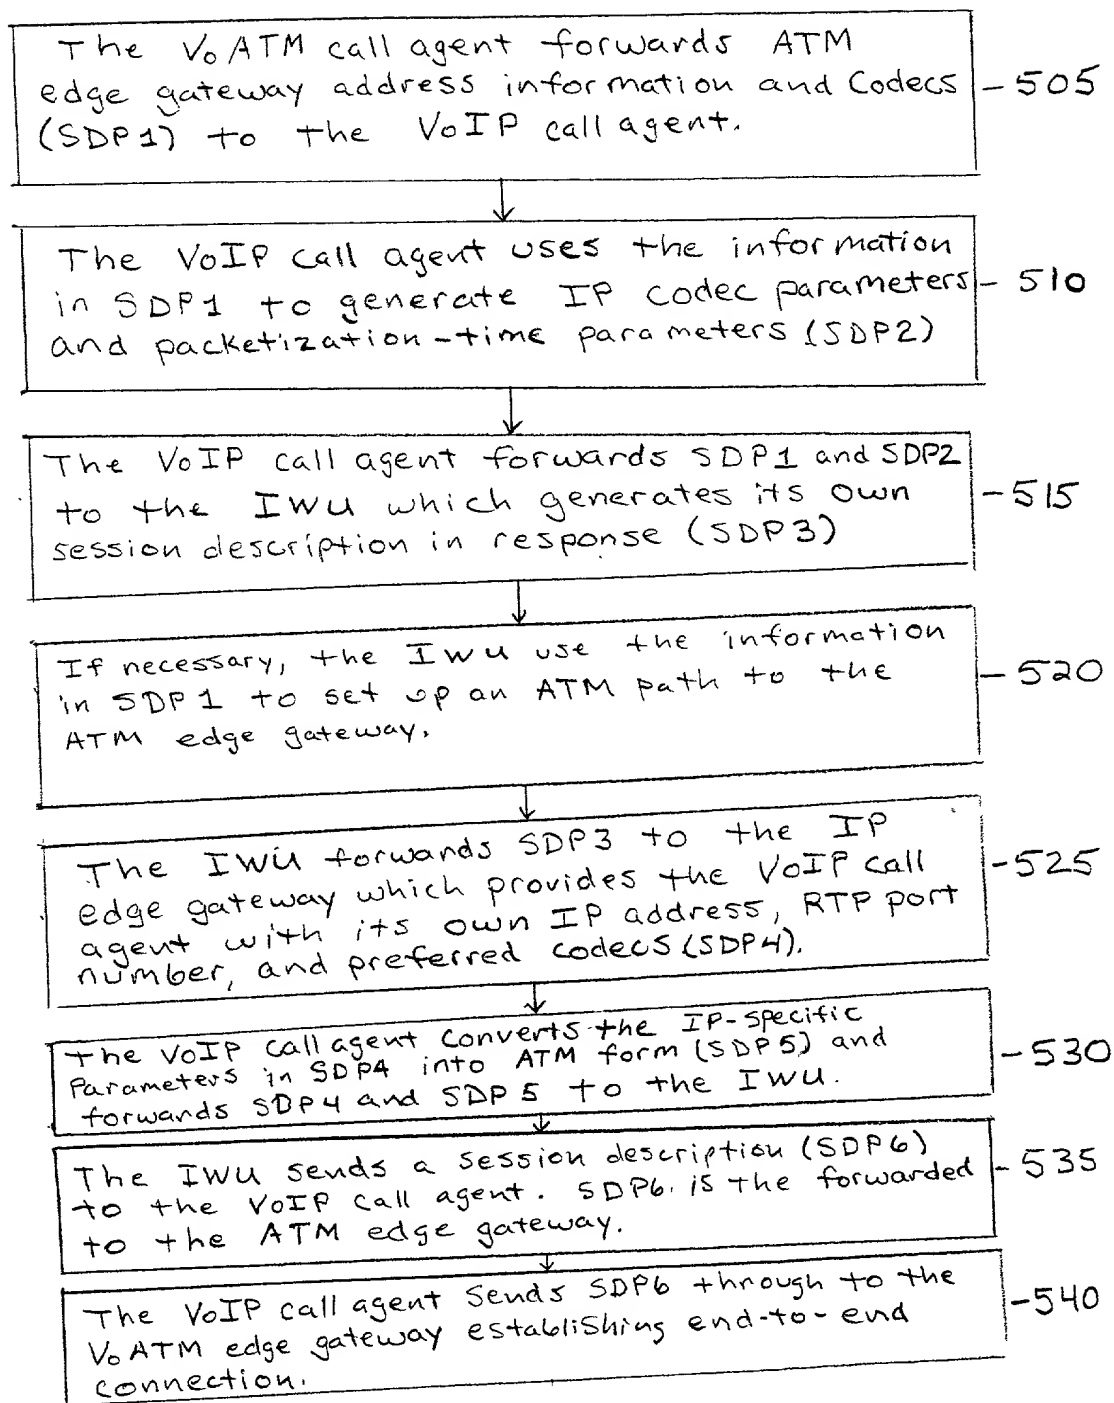 The VoATM call agent forwards ATM
edge gateway address information and Codecs
(SDP1) to the VoIP call agent.
505
The VoIP call agent uses the information
in SDP1 to generate IP codec parameters
and packetization-time parameters (SDP2)
510
The VoIP call agent forwards SDP1 and SDP2
to the IWU which generates its own
session description in response (SDP3)
515
If necessary, the IWU use the information
in SDP1 to set up an ATM path to the
ATM edge gateway.
520
The IWU forwards SDP3 to the IP
edge gateway which provides the VoIP call
agent with its own IP address, RTP port
number, and preferred codecs (SDP4).
525
The VoIP call agent converts the IP-specific
Parameters in SDP4 into ATM form (SDP5) and
forwards SDP4 and SDP5 to the IWU.
530
The IWU sends a session description (SDP6)
to the VoIP call agent. SDP6 is the forwarded
to the ATM edge gateway.
535
The VoIP call agent sends SDP6 through to the
VoATM edge gateway establishing end-to-end
connection.
540